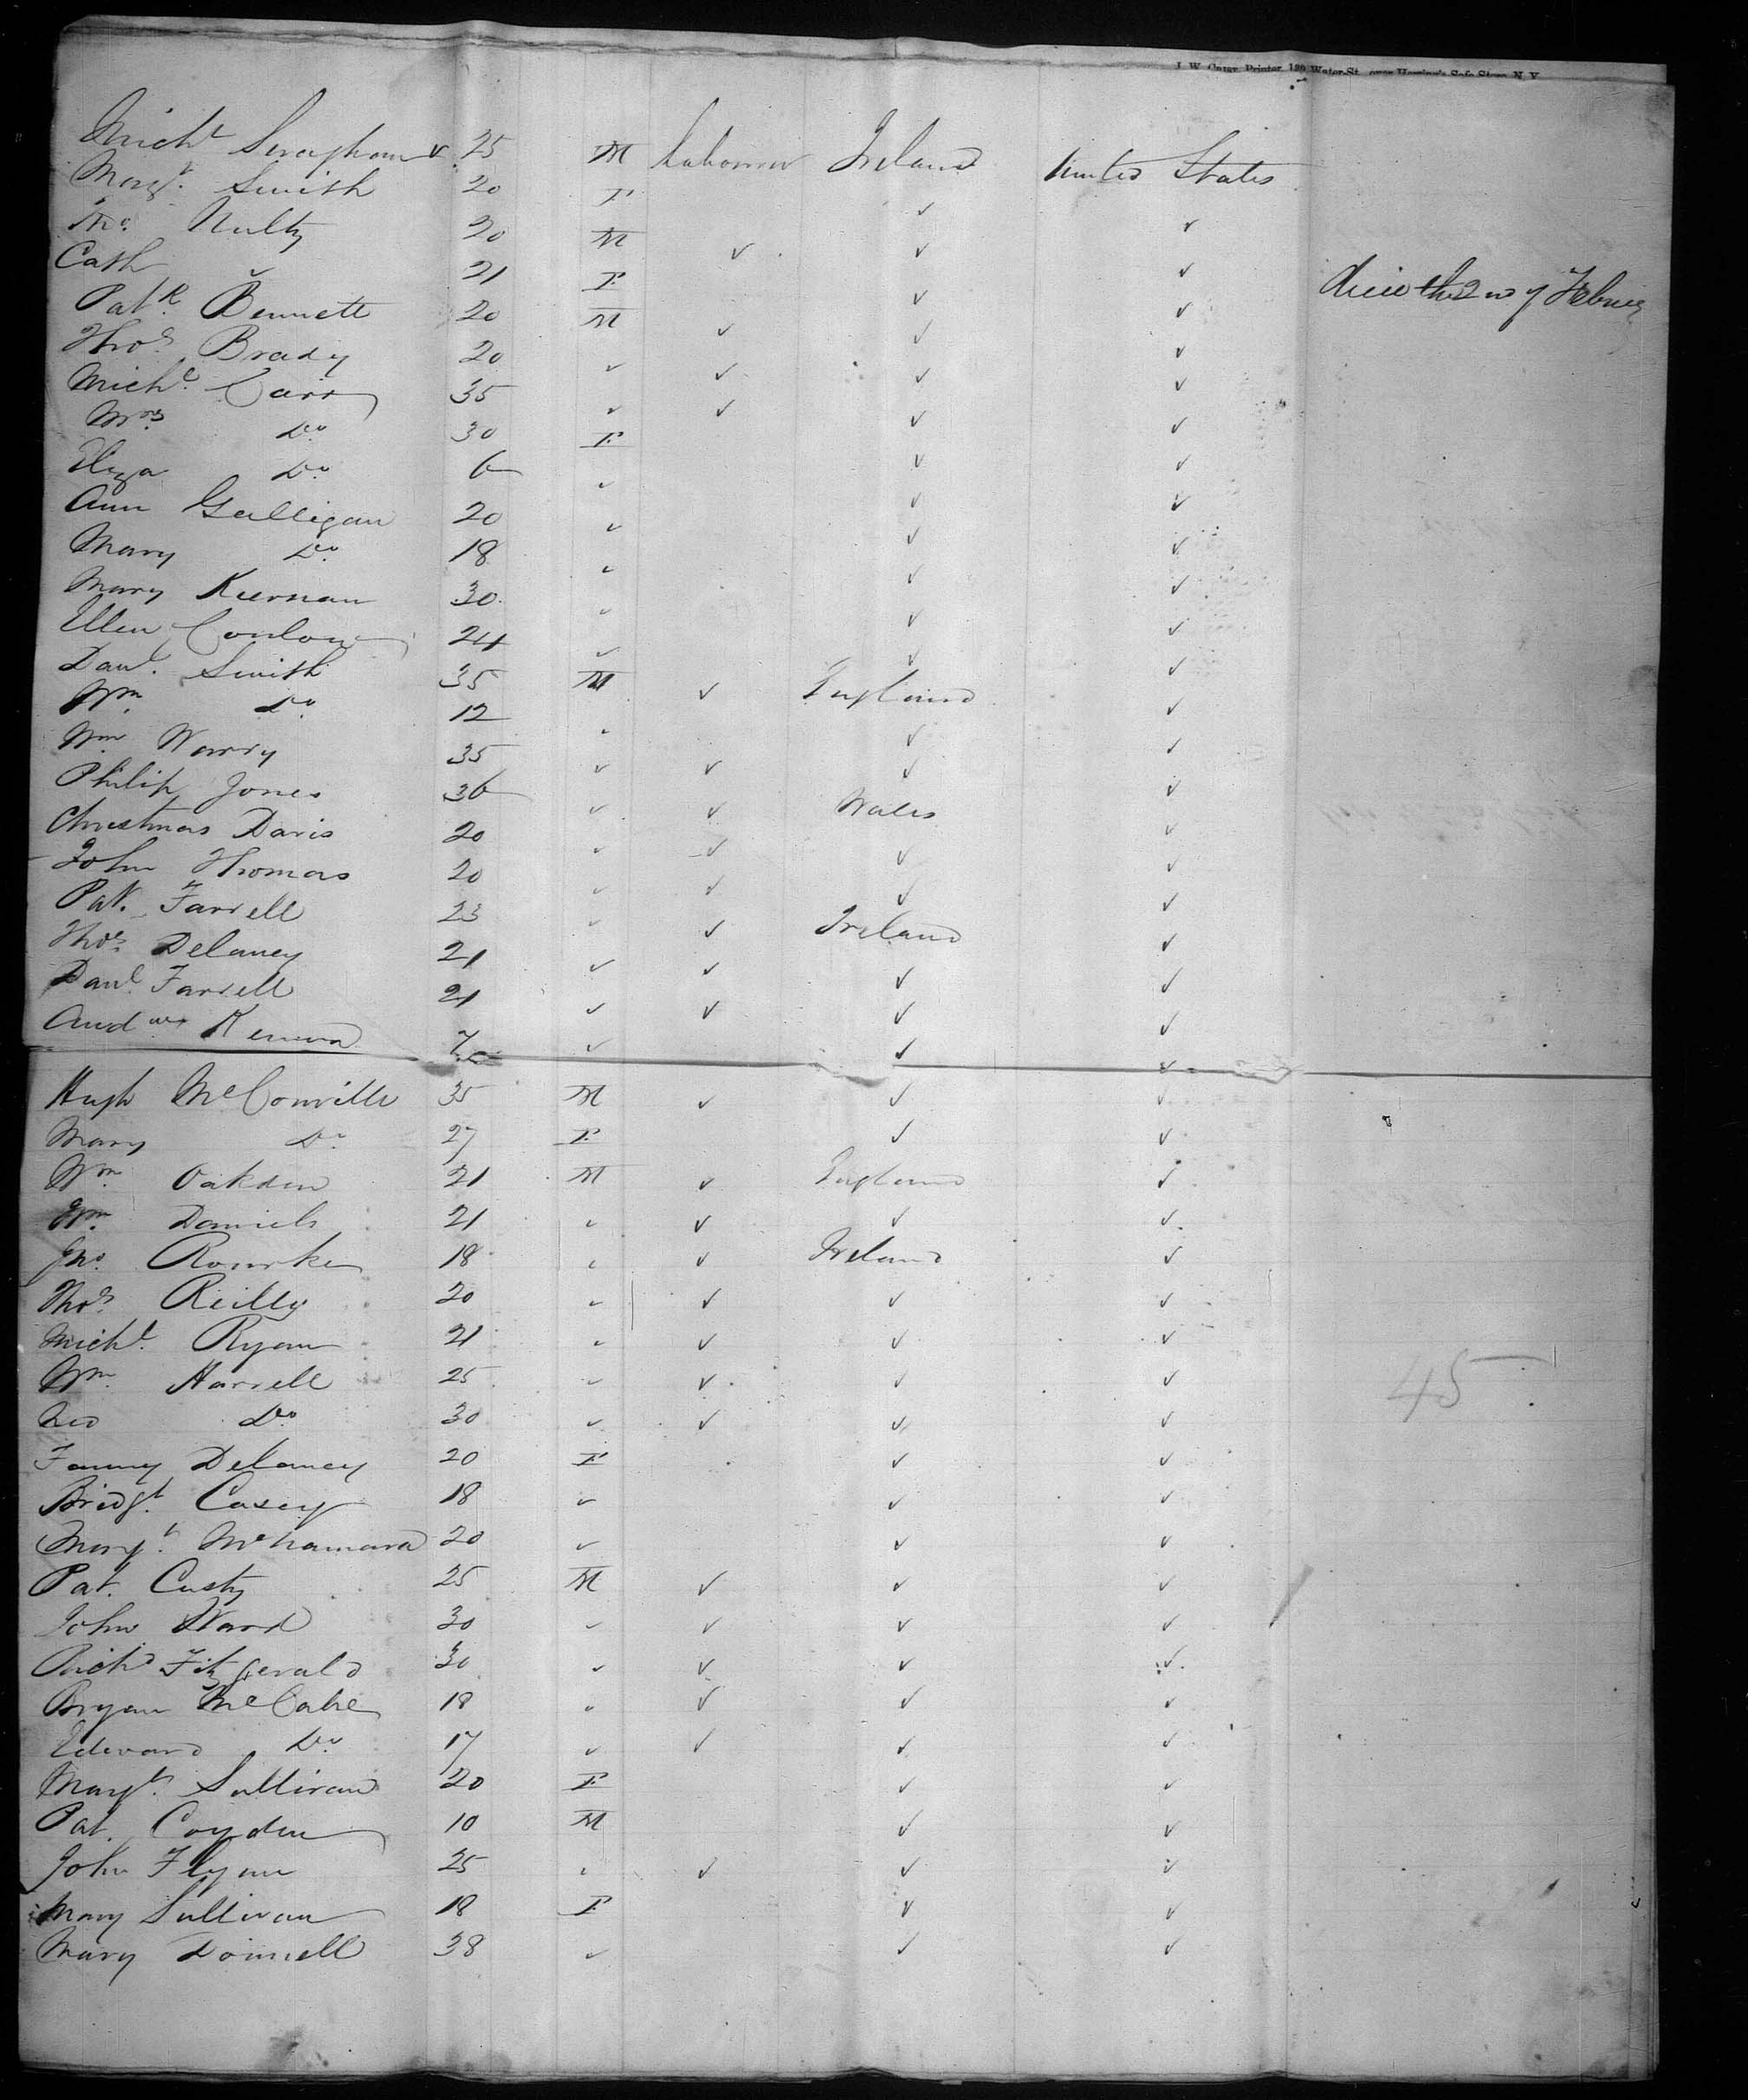 J. W. Oliver, Printer, 120 Water-St. over Herring's Safe Store, N. Y.
Mich^l 25 M Labourer Ireland United States
Marg^t. Smith 20 F ✓ ✓
Nulty 20 M ✓ ✓ ✓
Cath ˇ 21 F ✓ ✓ the 2nd of
Pat^k. Bennett 20 M ✓ ✓ ✓
Tho^s. Brady 20 ✓ ✓ ✓ ✓
Mich^l. Carr 35 ✓ ✓ ✓ ✓
Mrs D^o. 30 F ✓ ✓
Eliza D^o. 6 ✓ ✓ ✓
Ann Galligan 20 ✓ ✓ ✓
Mary D^o. 18 ✓ ✓ ✓
Mary Kiernan 30 ✓ ✓ ✓
Ellen Conlon 24 ✓ ✓ ✓
Dan^l. Smith 35 M ✓ England ✓
W^m. D^o. 12 ✓ ✓ ✓
W^m Warry 35 ✓ ✓ ✓ ✓
Philip Jones 36 ✓ ✓ Wales ✓
Christmas Davis 20 ✓ ✓ ✓ ✓
John Thomas 20 ✓ ✓ ✓ ✓
Pat. Farrell 23 ✓ ✓ Ireland ✓
Tho^s. Delaney 21 ✓ ✓ ✓ ✓
Dan^l. Farrell 21 ✓ ✓ ✓ ✓
And^w 7 ✓ ✓ ✓
Hugh McConville 35 M ✓ ✓ ✓
Mary D^o 27 F ✓ ✓
W^m. Oakden 21 M ✓ England ✓
W^m. Daniels 21 ✓ ✓ ✓ ✓
Jn^o. Rourke 18 ✓ ✓ Ireland ✓
Tho^s. Reilly 20 ✓ ✓ ✓ ✓
Mich^l. Ryan 21 ✓ ✓ ✓ ✓
W^m. Harrell 25 ✓ ✓ ✓ ✓ 45
Ned D^o. 30 ✓ ✓ ✓ ✓
Fanny Delaney 20 F ✓ ✓
Bridg^t. Casey 18 ✓ ✓ ✓
Marg^t. McNamara 20 ✓ ✓ ✓
Pat. Custy 25 M ✓ ✓ ✓
John Ward 30 ✓ ✓ ✓ ✓
Rich^d Fitzgerald 30 ✓ ✓ ✓ ✓
Bryan McCabe 18 ✓ ✓ ✓ ✓
Edward D^o 17 ✓ ✓ ✓ ✓
Marg^t. Sullivan 20 F ✓ ✓
Pat. Coyden 10 M ✓ ✓
John Flynn 25 ✓ ✓ ✓ ✓
Mary Sullivan 18 F ✓ ✓
Mary Donnell 38 ✓ ✓ ✓